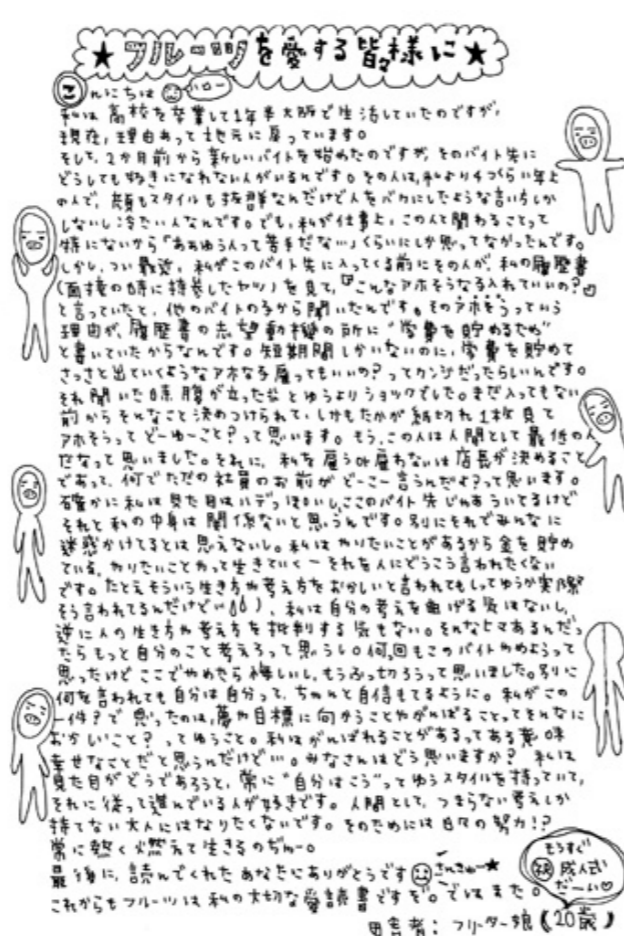 ★フルーツを愛する皆々様に★
こんにちは ハロー
私は高校を卒業して1年半大阪で生活していたのですが、
現在、理由あって地元に戻っています。
そして、2か月前から新しいバイトを始めたのですが、そのバイト先に
どうしても好きになれない人がいるんです。その人は、私より4つくらい年上
の人で、顔もスタイルも抜群なんだけど人をバカにしたような言い方しか
しないし冷たい人なんです。でも、私が仕事上、この人と関わることって
特にないから「ああゆう人って苦手だない」くらいにしか思ってなかったんです。
しかし、つい最近、私がこのバイト先に入ってくる前にその人が、私の履歴書
(面接の時に持参したヤツ)を見て、「こんなアホそうな子入れていいの?」
と言っていたと、他のバイトの子から聞いたんです。そのアホそうっていう
理由が、履歴書の志望動機の所に"学費を貯めるため"
と書いていたからなんです。短期間しかいないのに、学費を貯めて
さっさと出ていくようなアホな子雇ってもいいの?ってカンジだったらしいんです。
それ聞いた時、腹が立ったとゆうよりショックでした。まだ入ってもない
前からそんなこと決めつけられて、しかもたかが紙切れ1枚見て
アホそうってどーゆーこと?って思います。もう、この人は人間として最低の人
だなって思いました。それに、私を雇う雇わないは店長が決めること
であって、何でただの社員のお前がどーこー言うんだよ?って思います。
確かに私は見た目はハデっぽいし、ここのバイト先じゃあういてるけど
それと私の中身は関係ないと思うんです。別にそれでみんなに
迷惑かけてるとは思えないし。私はやりたいことがあるから金を貯め
ている、やりたいことやって生きていくーそれを人にどうこう言われたくない
です。たとえそういう生き方や考え方をおかしいと言われても(ってゆうか実際
そう言われてるんだけど…)、私は自分の考えを曲げる気はないし、
逆に人の生き方や考え方を批判する気もない。そんなヒマあるんだっ
たらもっと自分のこと考えろって思うし。何回もこのバイトやめようって
思ったけどここでやめたら悔しいし、もうぶっ切ろうって思いました。別に
何を言われても自分は自分って、ちゃんと自信もてるように。私がこの
一件?で思ったのは、夢や目標に向かうことやがんばることってそんなに
おかしいこと?ってゆうこと。私はがんばれることがあるってある意味
幸せなことだと思うんだけど…。みなさんはどう思いますか?私は
見た目がどうであろうと、常に"自分はこう"ってゆうスタイルを持っていて、
それに従って進んでいる人が好きです。人間として、つまらない考えしか
持てない大人にはなりたくないです。そのためには日々の努力!?
常に熱く燃えて生きるのぢゃー。
最後に、読んでくれたあなたにありがとうです さんきゅー★
これからもフルーツは私の大切な愛読書ですぞ。ではまた。
田舎者:フリーター娘(20歳)
もうすぐ
祝 成人式
だーい♡